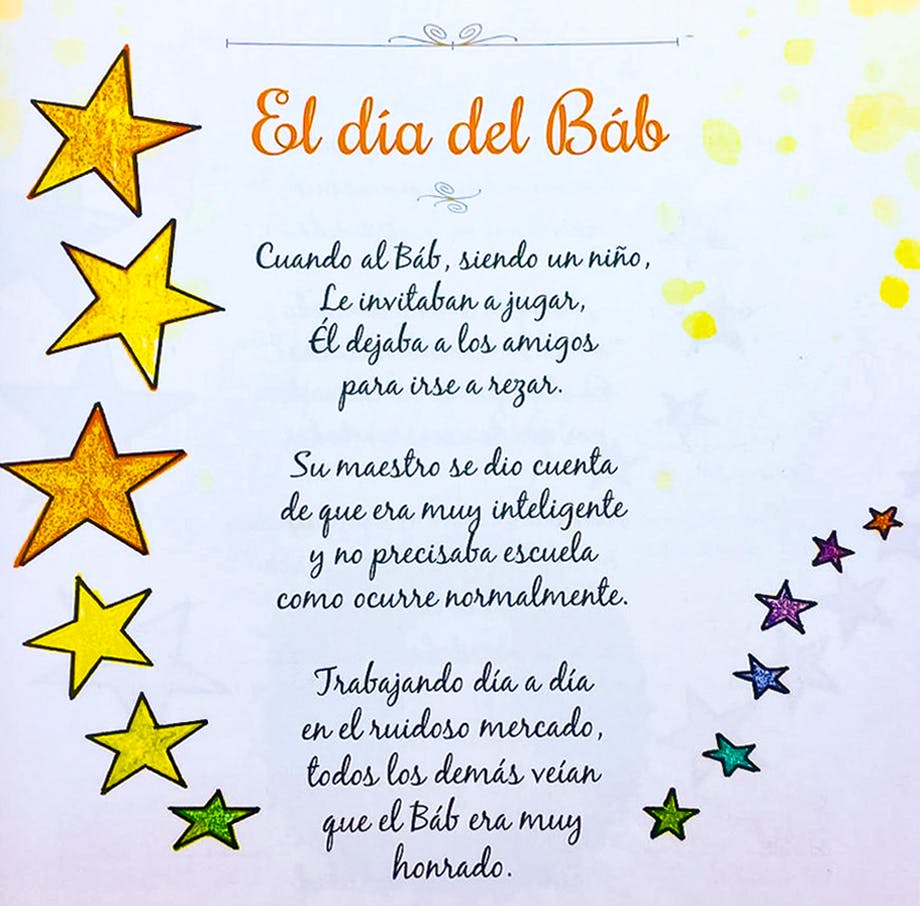 El día del Báb
Cuando al Báb, siendo un niño,
Le invitaban a jugar,
Él dejaba a los amigos
para irse a rezar.
Su maestro se dio cuenta
de que era muy inteligente
y no precisaba escuela
como ocurre normalmente.
Trabajando día a día
en el ruidoso mercado,
todos los demás veían
que el Báb era muy
honrado.